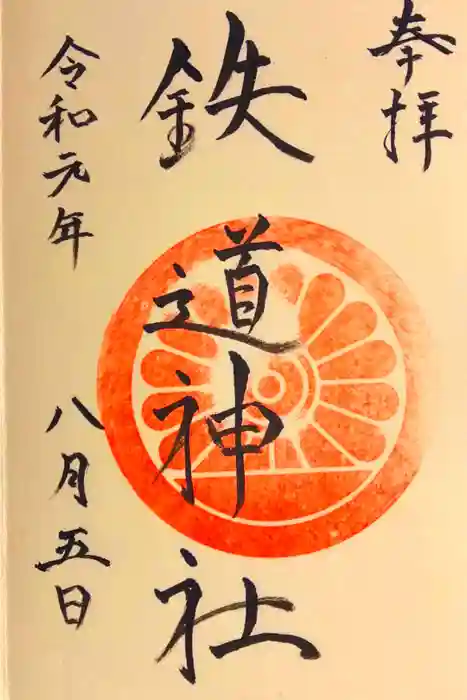 奉拝
鉄道神社
令和元年 八月五日